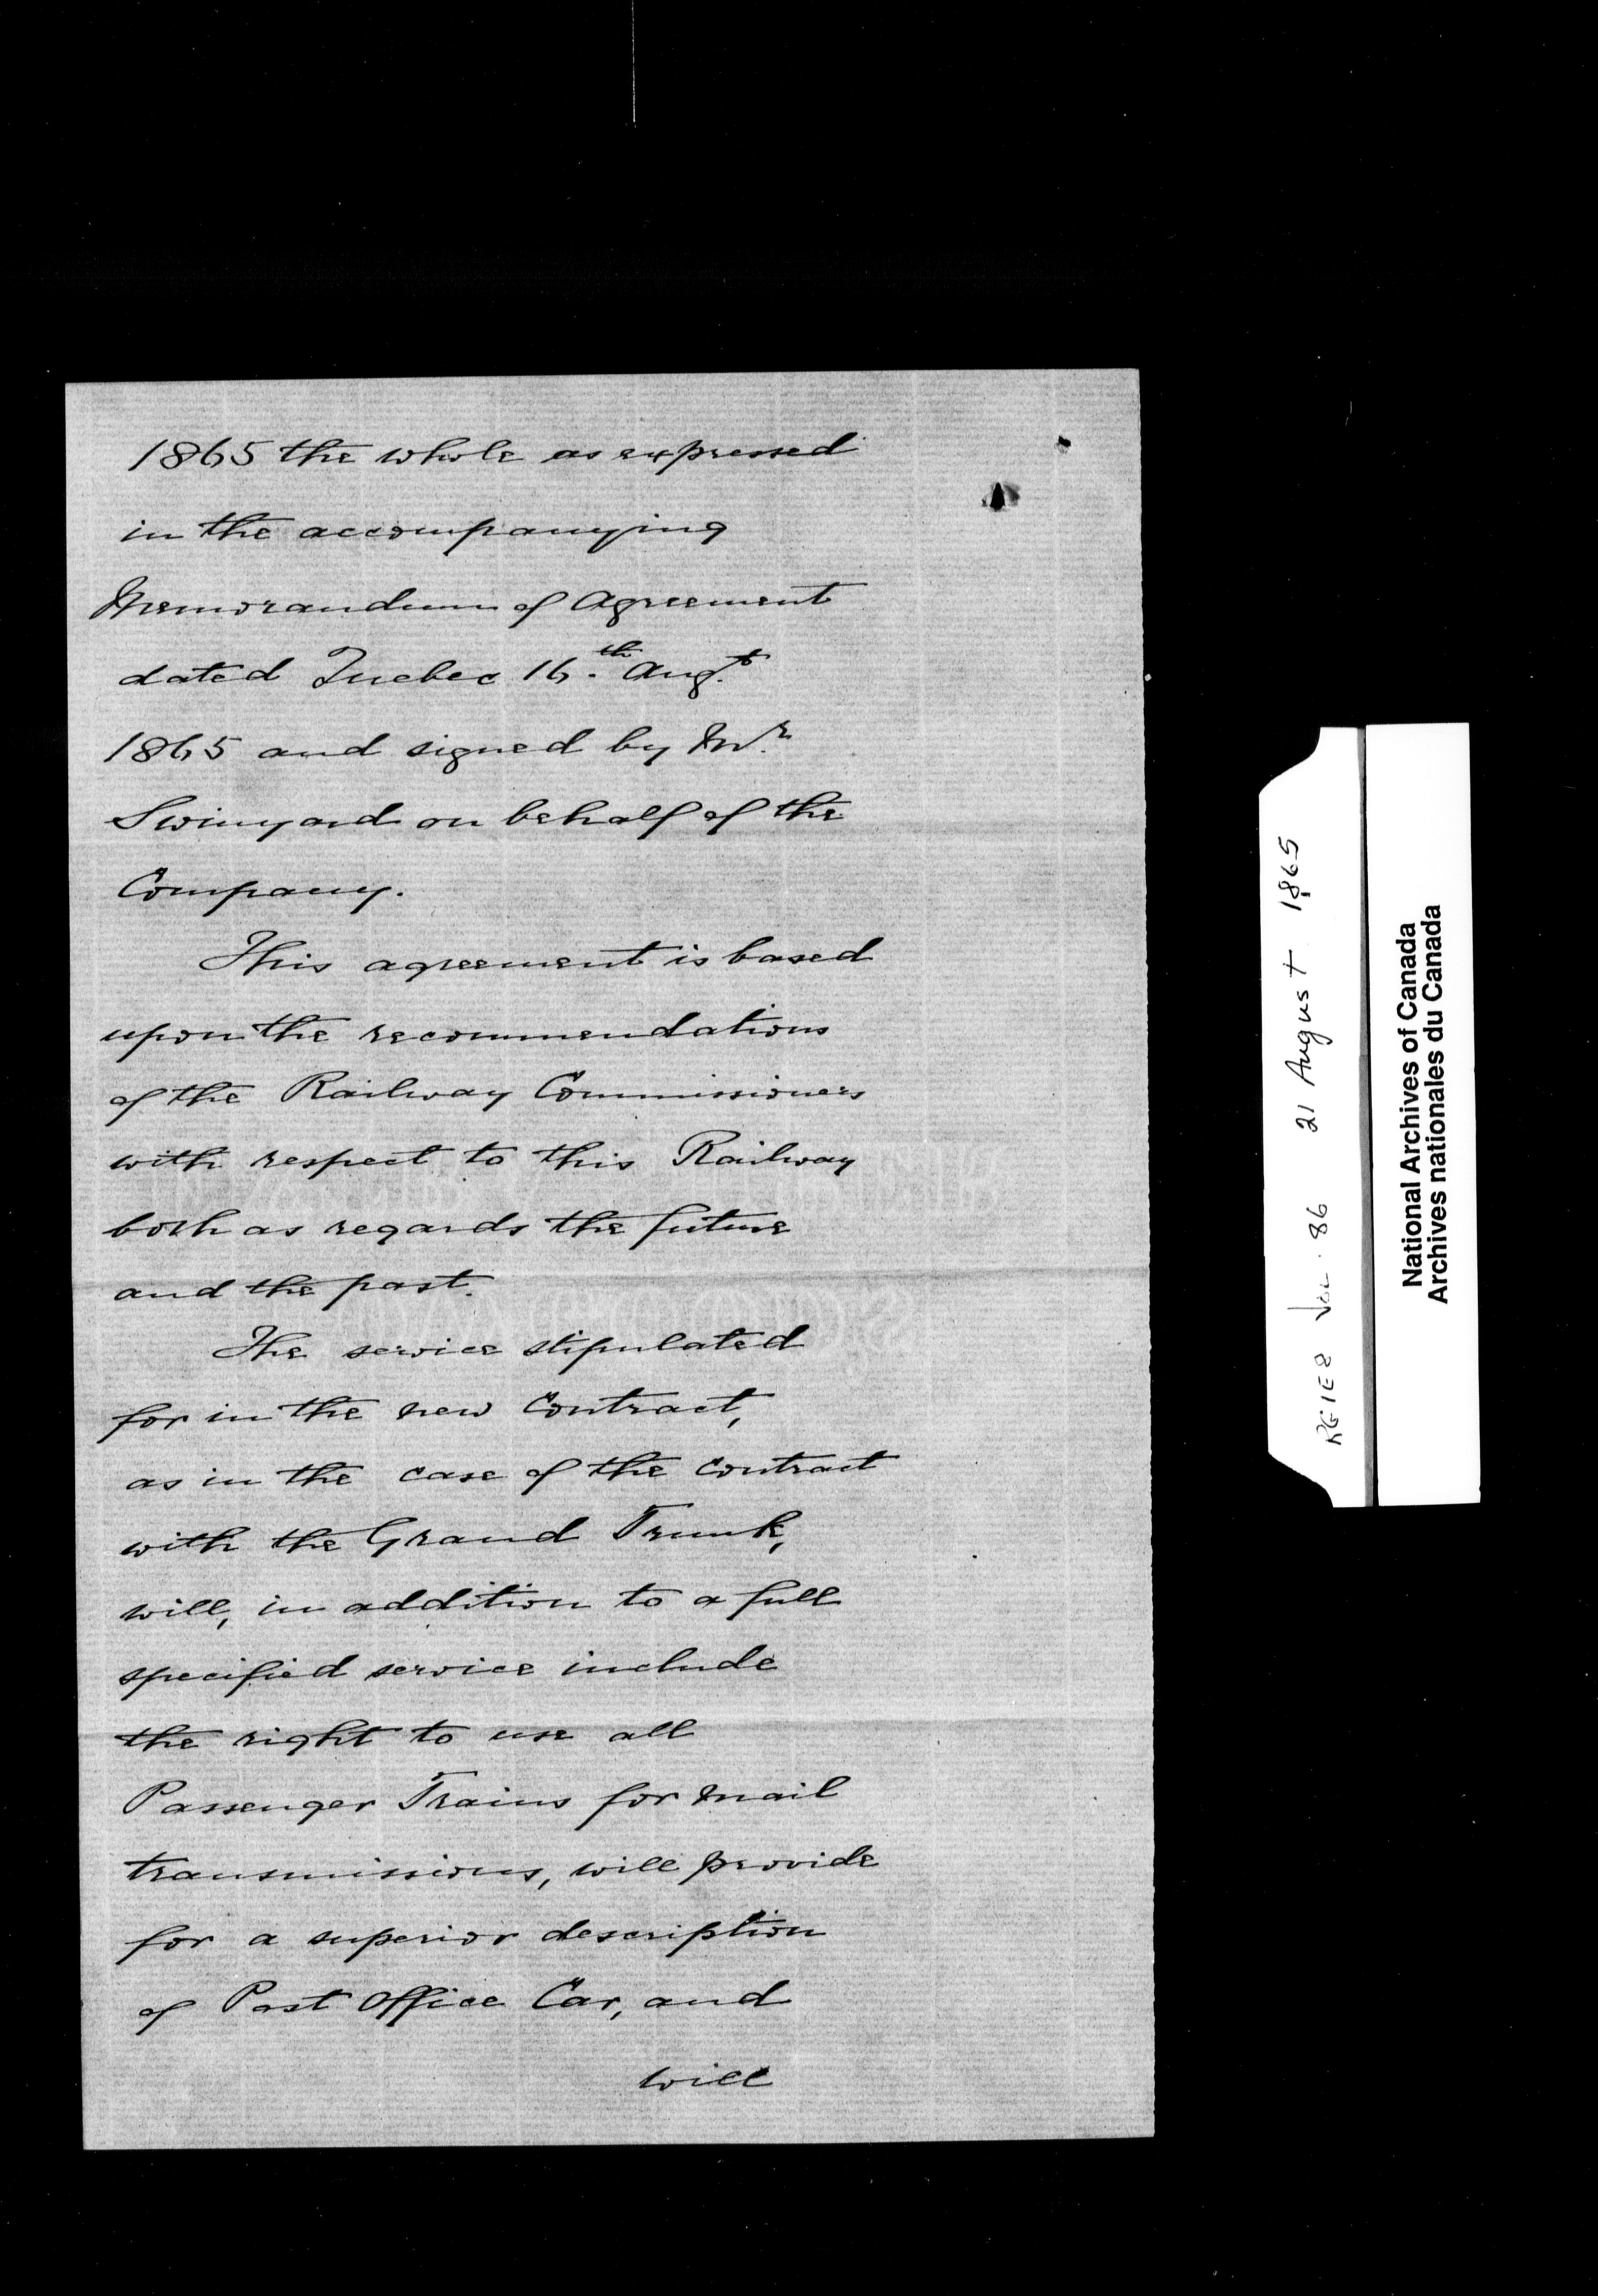 1865 the whole as expressed
in the accompanying
Memorandum of Agreement
dated Quebec 16.th Augt.
1865 and signed by Mr.
Swinyard on behalf of the
Company.
This agreement is based
upon the recommendations
of the Railway Commissioners
with respect to this Railway
both as regards the future
and the past.
The service stipulated
for in the new Contract,
as in the case of the Contract
with the Grand Trunk,
will, in addition to a full
specified service include
the right to use all
Passenger Trains for Mail
transmissions, will provide
for a superior description
of Post Office Car, and
will
RG1E8 Vol. 86 21 August 1865
National Archives of Canada
Archives nationales du Canada